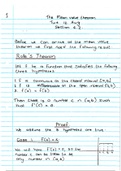 The Mean value theorem
Tue 16 Aug
Section 4.2
Before we can arrive at the mean value
theorem we first need the following result
Rolle's Theorem
Let f be a function that satisfies the following
three hypotheses
1. f is continuous on the closed interval [a,b]
2. f is differentiable in the open interval (a,b)
3. f(a) = f(b)
Then there is a number c in (a,b) such
that f'(c) = 0
Proof
We assume the 3 hypotheses are true
Case 1. f(x) = k
We will have f'(x) = 0, so the
number c can be taken to be
any number in (a,b)